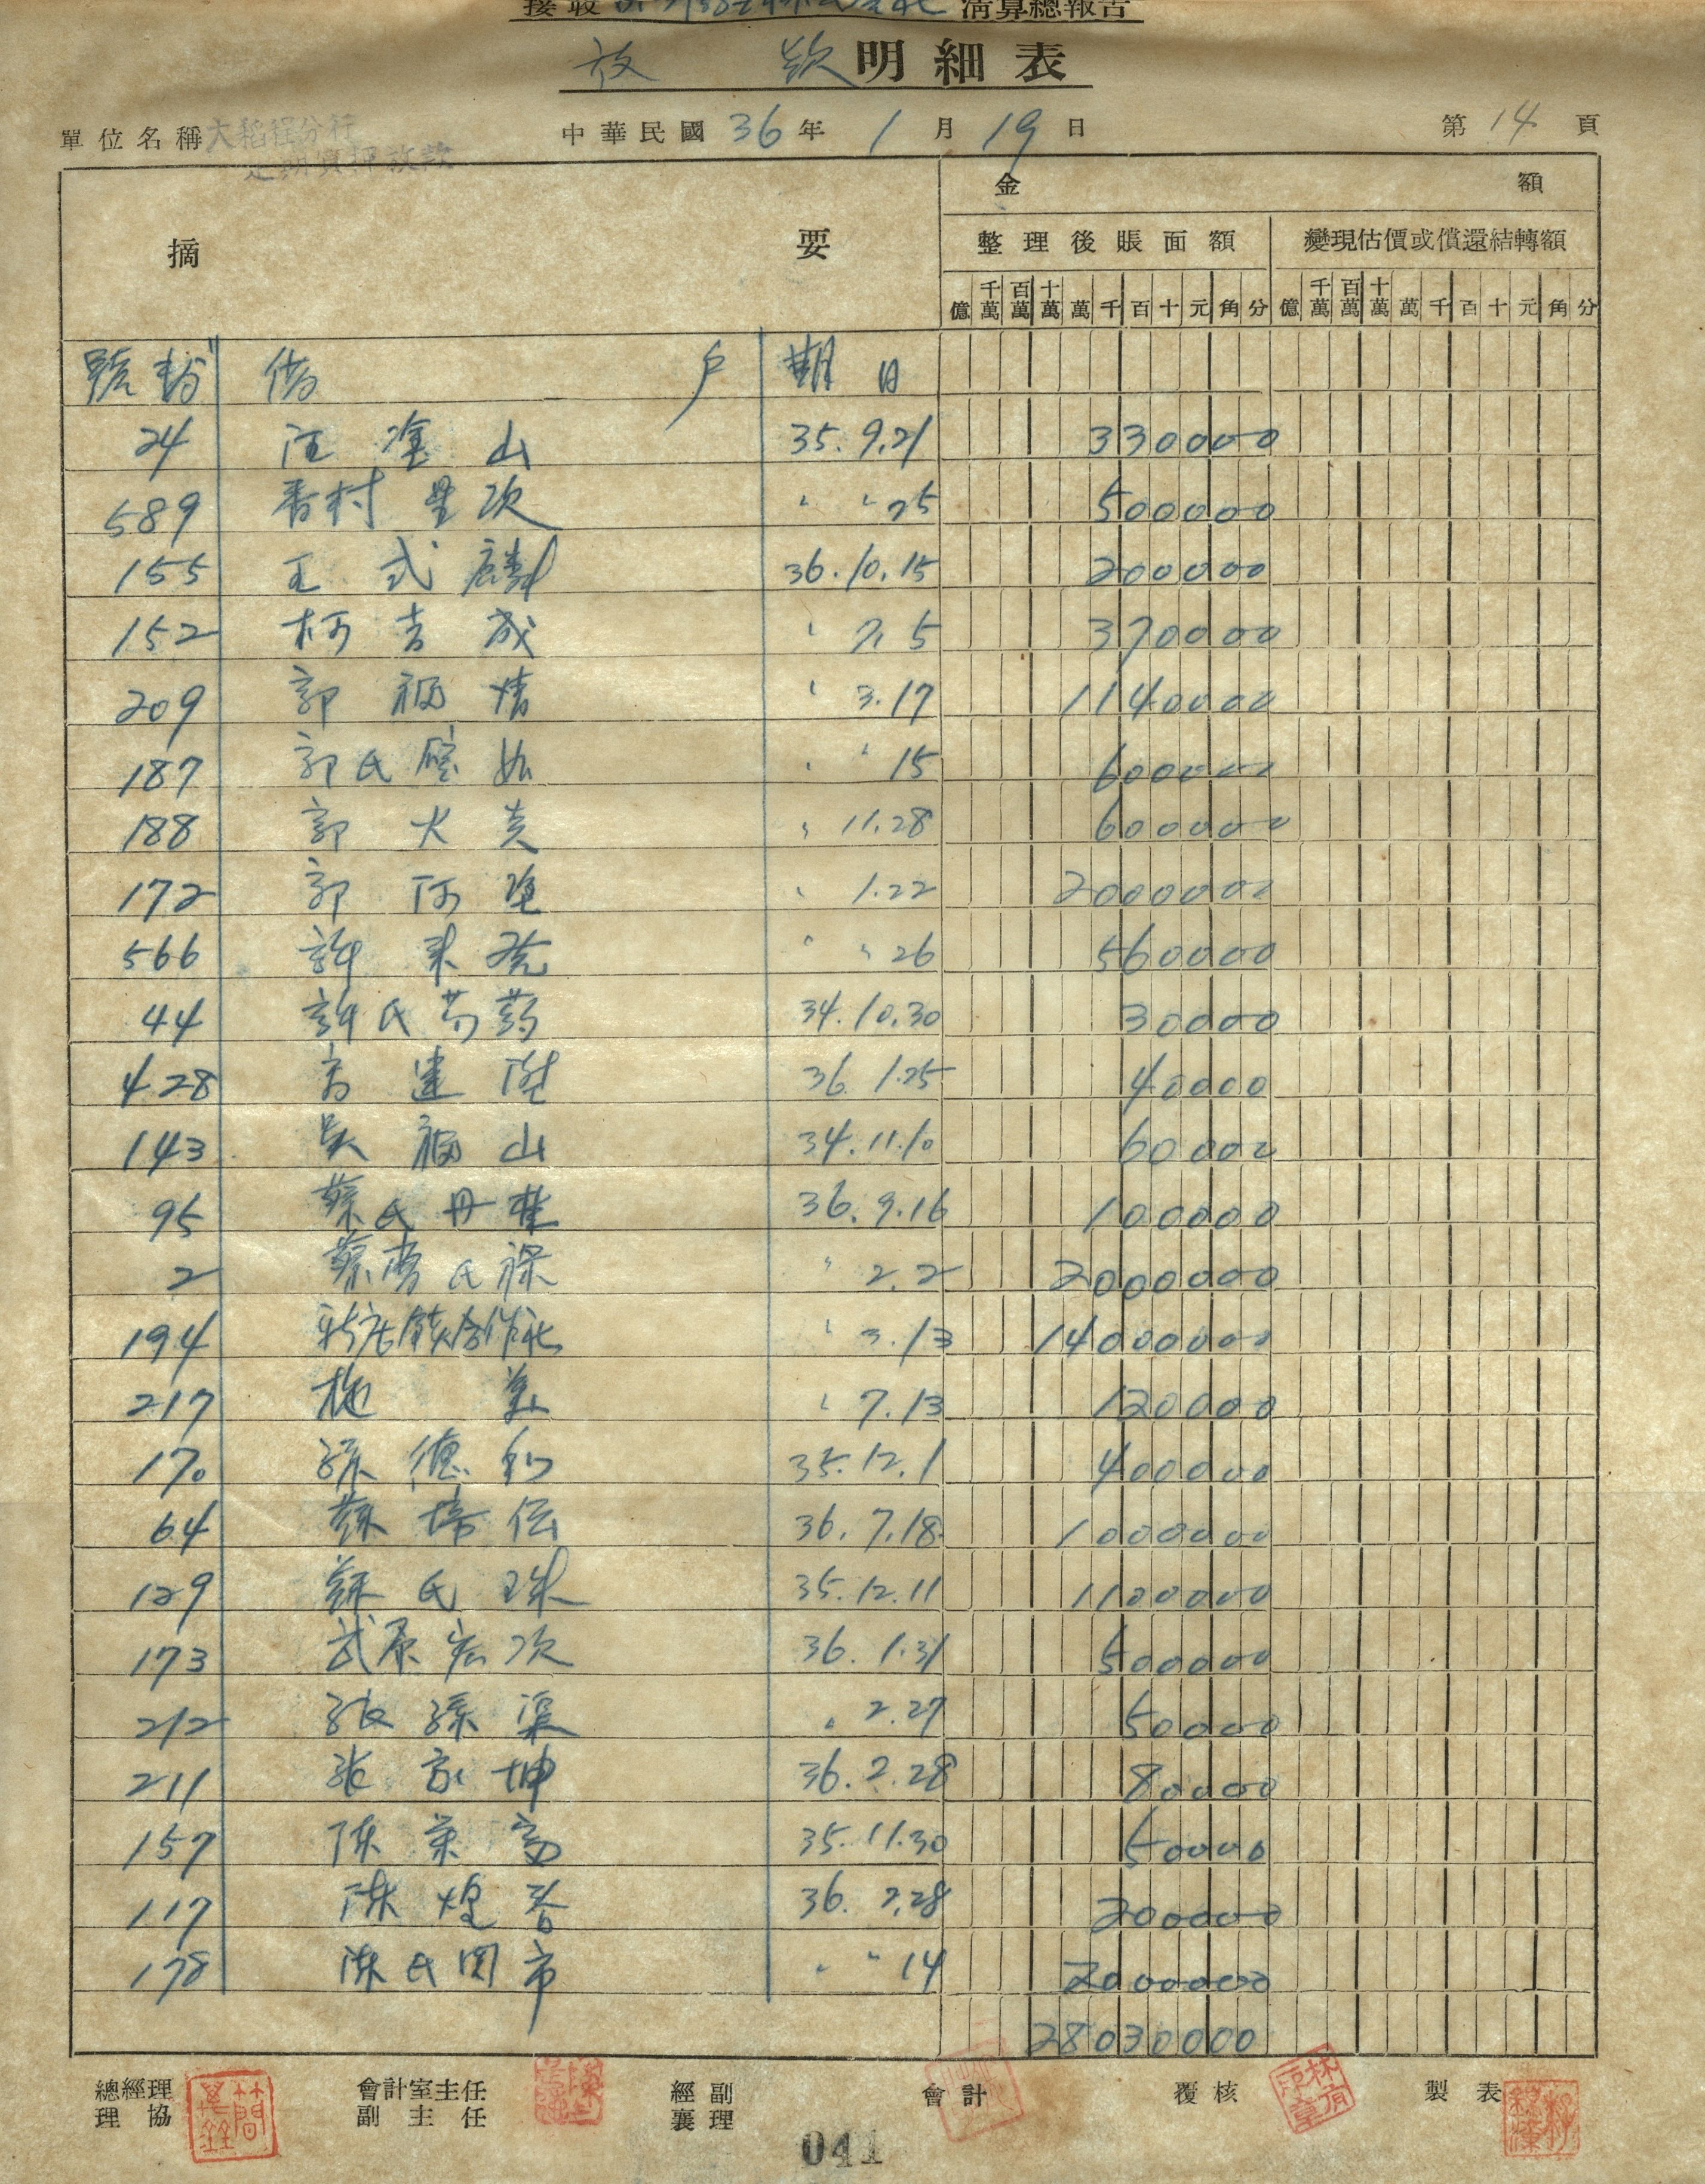 接收 清算總報告
放 款 明細表
單位名稱 大稻埕分行
定期質押放款
中華民國 36 年 1 月 19 日
第 14 頁
摘 要
金 額
整理後賬面額 變現估價或償還結轉額
億 千萬 百萬 十萬 萬 千 百 十 元 角 分 億 千萬 百萬 十萬 萬 千 百 十 元 角 分
號數 借 戶 期日
24 汪塗山 35.9.21 330000
589 香村里次 〃 〃 25 500000
155 王式麟 36.10.15 200000
152 柯吉成 〃 7.5 370000
209 郭福情 〃 3.17 1140000
187 郭氏 〃 〃 15 600000
188 郭火炎 〃 11.28 600000
172 郭阿 〃 1.22 2000000
566 許來發 〃 〃 26 560000
44 許氏芍葯 34.10.30 30000
428 高建陞 36.1.25 40000
143 吳福山 34.11.10 60000
95 蔡氏丹桂 36.9.16 100000
2 蔡 氏祿 〃 2.2 2000000
194 新店 合作社 〃 3.13 14000000
217 施 〃 7.13 120000
170 孫德和 35.12.1 400000
64 蘇 伝 36.7.18 1000000
129 蘇氏珠 35.12.11 1100000
173 武原宏次 36.1.31 500000
212 張孫渠 〃 2.27 50000
211 張家坤 36.2.28 80000
157 陳 富 35.11.30 50000
117 陳煌 36.2.28 200000
178 陳氏 市 〃 〃 14 2000000
28030000
總經理 協理 會計室主任 副主任 經副襄理 會計 覆核 製表
林有章
041